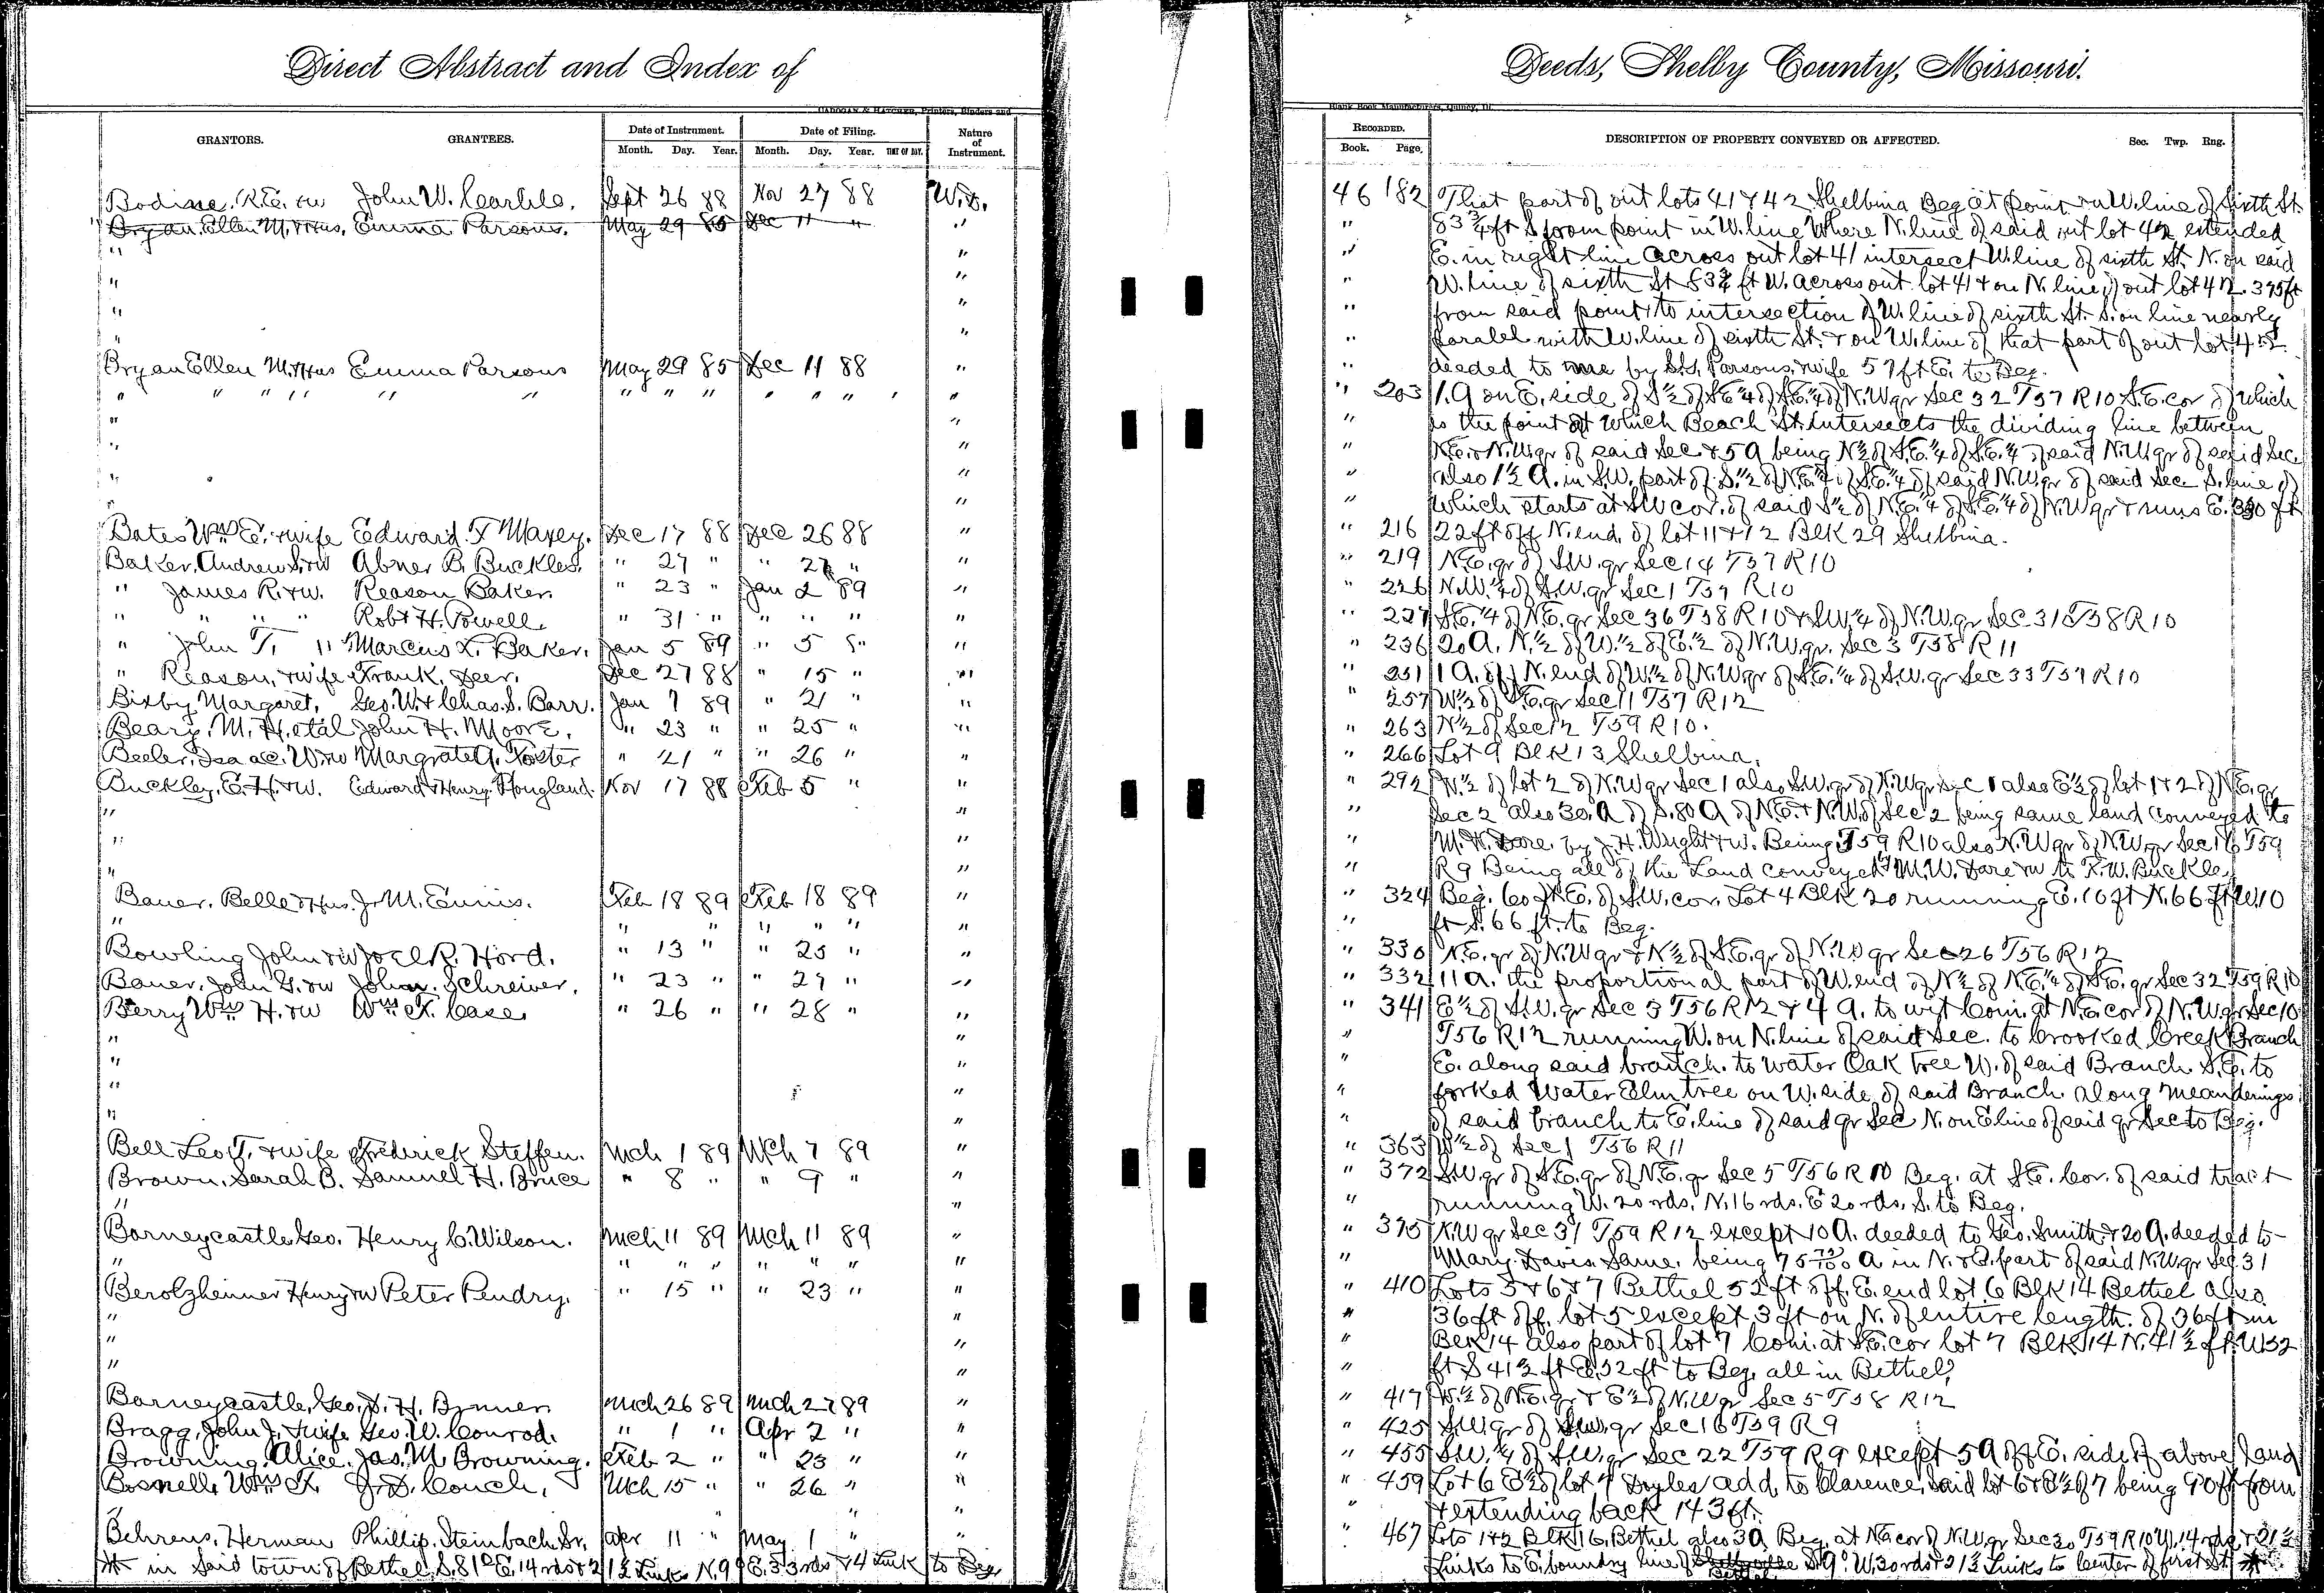 Direct Abstract and Index of
CADOGAN & HATCHER, Printers, Binders and
GRANTORS. GRANTEES. Date of Instrument. Date of Filing. Nature of Instrument.
Month. Day. Year. Month. Day. Year. TIME OF DAY.
Bodine, R.E. +w John W. Carlile. Sept 26 88 Nov 27 88 W.D.
" Bryan Ellen M. + Hus. Emma Parsons. May 29 85 Dec 11 " "
" "
" "
" "
" "
" "
Bryan Ellen M. + Hus Emma Parsons May 29 85 Dec 11 88 "
" " " " " " " " " " " " "
" "
" "
" "
" "
Bates Wm E. + wife Edward. T Maxey. Dec 17 88 Dec 26 88 "
Baker, Andrew S. +w Abner B. Buckles. " 27 " " 27 " "
" James R. +w. Reason Baker " 23 " Jan 2 89 "
" " " " Robt H. Powell " 31 " " " " "
" John T. " Marcus L. Baker. Jan 5 89 " 5 " "
" Reason, + wife Frank. Deer. Dec 27 88 " 15 " "
Bixby Margaret. Geo. W. + Chas. S. Barr. Jan 7 89 " 21 " "
Beary. M. H. et al John H. Moore. " 23 " " 25 " "
Beeler, Isaac. W. +w Margratett. Foster " 21 " " 26 " "
Buckley, E. H. +w. Edward + Henry Hougland. Nov 17 88 Feb 5 " "
" "
" "
" "
Bauer. Belle + Hus. J. M. Ennis. Feb 18 89 Feb 18 89 "
" " " " " " " "
Bowling John +w Joel R. Hord. " 13 " " 25 " "
Bauer, John G. +w John. Schreiver. " 23 " " 27 " "
Berry Wm H. +w Wm T. Case " 26 " " 28 " "
" "
" "
" "
" "
Bell Leo T. + wife Fredrick Steffen. Mch 1 89 Mch 7 89 "
Brown, Sarah B. Samuel H. Bruce " 8 " " 9 " "
" "
Barneycastle Geo. Henry C. Wilson. Mch 11 89 Mch 11 89 "
" " " " " " " "
Berolzheimer Henry +w Peter Pendry. " 15 " " 23 " "
" "
" "
" "
Barneycastle, Geo. D. H. Bonner Mch 26 89 Mch 27 89 "
Bragg, John J. + wife Geo. W. Conrod. " 1 " Apr 2 " "
Browning, Alice. Jas. M. Browning. Feb 2 " " 23 " "
Bosnell Wm J. D. Couch. Mch 15 " " 26 " "
" " " "
Behrens, Herman Phillip. Steinbach, Sr. Apr 11 " May 1 " "
* in said town of Bethel S. 81° E. 14 rds + 21½ Links N. 9° E. 33 rds + 4 Link to Beg.
Deeds, Shelby County, Missouri.
Blank Book Manufacturers, Quincy, Ill.
RECORDED. DESCRIPTION OF PROPERTY CONVEYED OR AFFECTED. Sec. Twp. Rng.
Book. Page.
46 182 That part of out lots 41 + 42 Shelbina Beg at point in W. line of Sixth St.
" 83¾ ft S from point in W. line Where N. line of said out lot 42 extended
" E. in right line across out lot 41 intersect W. line of sixth St. N. on said
" W. line of sixth St 83¾ ft W. across out lot 41 + on N. line of out lot 42. 375 ft
" from said point to intersection of W. line of sixth St. S. on line nearly
" paralel with W. line of sixth St. + on W. line of that part of out lot 42
" deeded to me by S. G. Parsons + wife 57 ft E. to Beg.
" 203 1. A on E. side of S½ of S.E¼ of S.E.¼ of N.W qr Sec 32 T57 R10 S.E. cor of which
" is the point at which Beach St. intersects the dividing line between
" N.E. + N.W. qr of said Sec. + 5 A being N½ of S.E.¼ of S.E.¼ of said N.W. qr of said Sec.
" also 1½ A. in S.W. part of S.½ of N.E.¼ of S.E.¼ of said N.W. qr of said Sec. S. line of
" which starts at S.W cor. of said S½ of N.E.¼ of S.E.¼ of N.W qr + runs E. 330 ft
" 216 22 ft off N. end. of lot 11 + 12 Blk 29 Shelbina.
" 219 N.E. qr of S.W. qr Sec 14 T57 R10
" 226 N.W.¼ of S.W. qr Sec 1 T59 R10
" 227 S.E.¼ of N.E. qr Sec 36 T58 R10 + S.W.¼ of N.W. qr Sec 31 T58 R10
" 236 20 A. N.½ of W.½ of E.½ of N.W. qr. Sec 3 T58 R11
" 251 1 A. off N. end of W.½ of N.W qr of S.E.¼ of S.W. qr Sec 33 T59 R10
" 257 W.½ of S.E. qr Sec 11 T57 R12
" 263 N½ of Sec 12 T59 R10.
" 266 Lot 9 Blk 13 Shelbina.
" 292 W.½ of lot 2 of N.W qr Sec 1 also S.W. qr of N.W qr Sec 1 also E½ of lot 1 + 2 of N.E. qr
" Sec 2 also 30. A of S. 80 A of N.E. + N.W. of Sec 2 being same land conveyed to
" M. W. Dare. by J. H. Wright +w. Being T59 R10 also N.W qr of N.W. qr Sec 16 T59
" R9 Being all of the Land conveyed by M. W. Dare +w to T. W. Buckley
" 324 Beg. 60 ft E. of S.W. cor. Lot 4 Blk 20 running E. 10 ft N. 66 ft W. 10
" ft S. 66 ft. to Beg.
" 330 N.E. qr of N.W qr + N½ of S.E. qr of N.W qr Sec 26 T56 R12
" 332 11 A. the proportional part of W. end of N½ of N.E.¼ of S.E. qr Sec 32 T59 R10
" 341 E½ of S.W. qr Sec 3 T56 R12 + 4 A. to wit Com. at N.E cor of N.W. qr Sec 10
" T56 R12 running W. on N. line of said Sec. to Crooked Creek Branch
" E. along said branch. to Water Oak tree W. of said Branch S.E. to
" forked Water Elm tree on W. side of said Branch along meanderings
" of said branch to E. line of said qr Sec N. on E line of said qr Sec to Beg.
" 363 W½ of Sec 1 T56 R11
" 372 S.W. qr of S.E. qr of N.E. qr Sec 5 T56 R10 Beg. at S.E. Cor. of said tract
" running W. 20 rds. N. 16 rds. E 20 rds. S. to Beg.
" 375 N.W qr Sec 31 T59 R12 except 10 A. deeded to Geo. Smith + 20 A. deeded to
" Mary Davis Same being 75 A in N. + E. part of said N.W. qr Sec. 31
" 410 Lots 5 + 6 + 7 Bethel 52 ft off. E. end lot 6 Blk 14 Bethel also
" 36 ft off. lot 5 except 3 ft on N. of entire length. of 36 ft in
" Blk 14 also part of lot 7 Com. at S.E. cor lot 7 Blk 14 N. 41½ ft. W 32
" ft S 41½ ft E. 32 ft to Beg. all in Bethel.
" 417 W.½ of N.E. qr + E½ of N.W qr Sec 5 T58 R12
" 425 S.W. qr of S.W. qr Sec 16 T59 R9
" 455 S.W.¼ of S.W. qr Sec 22 T59 R9 except 5 A off E. side of above Land
" 459 Lot 6 E½ of lot 7 Doyles add. to Clarence, said lot 6 + E½ of 7 being 90 ft from
" + extending back 143 ft.
" 467 Lots 1 + 2 Blk 16. Bethel also 3 A. Beg. at N.E cor of N.W. qr Sec 30 T59 R10 W. 14 rds + 21½
Links to E. boundry line of Bethel S 9° W. 30 rds + 21½ Links to Center of first St *